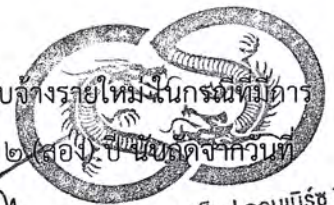 บจ้างรายใหม่ ในกรณีที่มีการ
๒ (สอง) ปี นับถัดจากวันที่